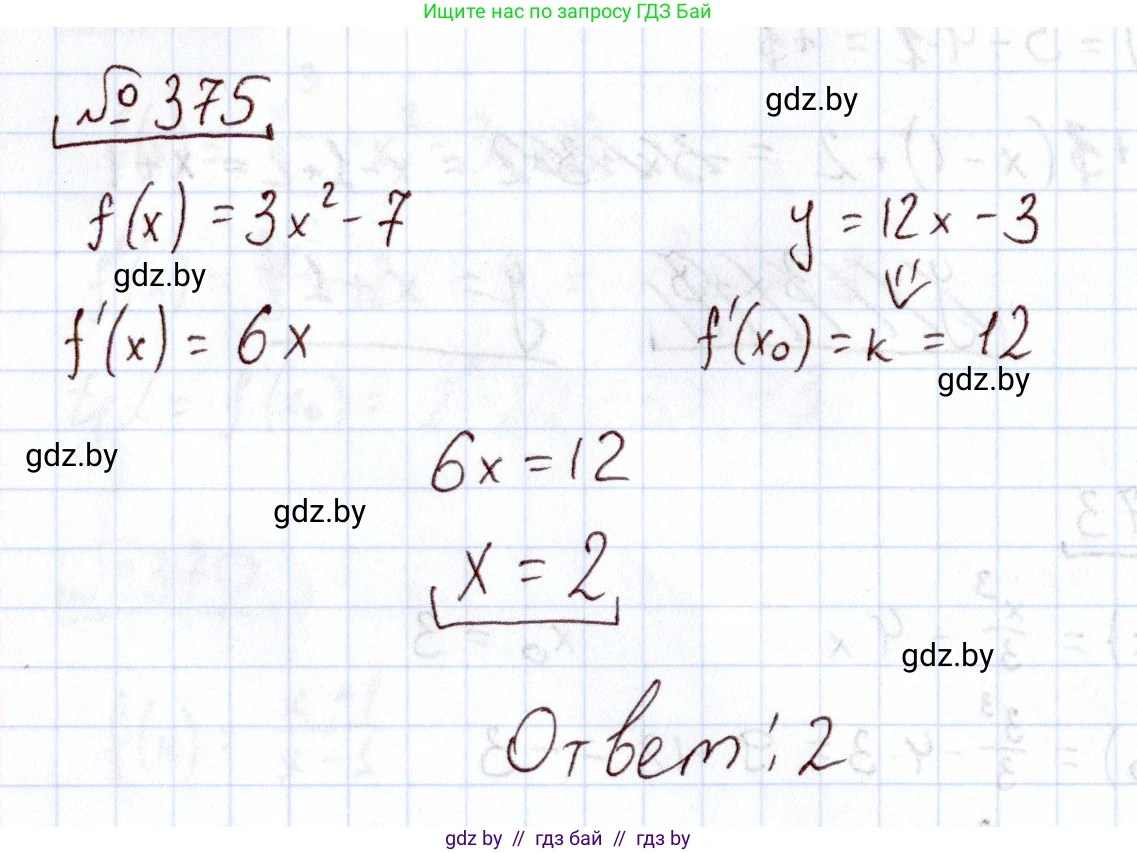 Ищите нас по запросу ГДЗ Бай
№ 375
gdz.by
f(x) = 3x² - 7
y = 12x - 3
gdz.by
f'(x) = 6x
f'(x₀) = k = 12
gdz.by
gdz.by
6x = 12
gdz.by
x = 2
gdz.by
Ответ: 2
gdz by // гдз бай // гдз by